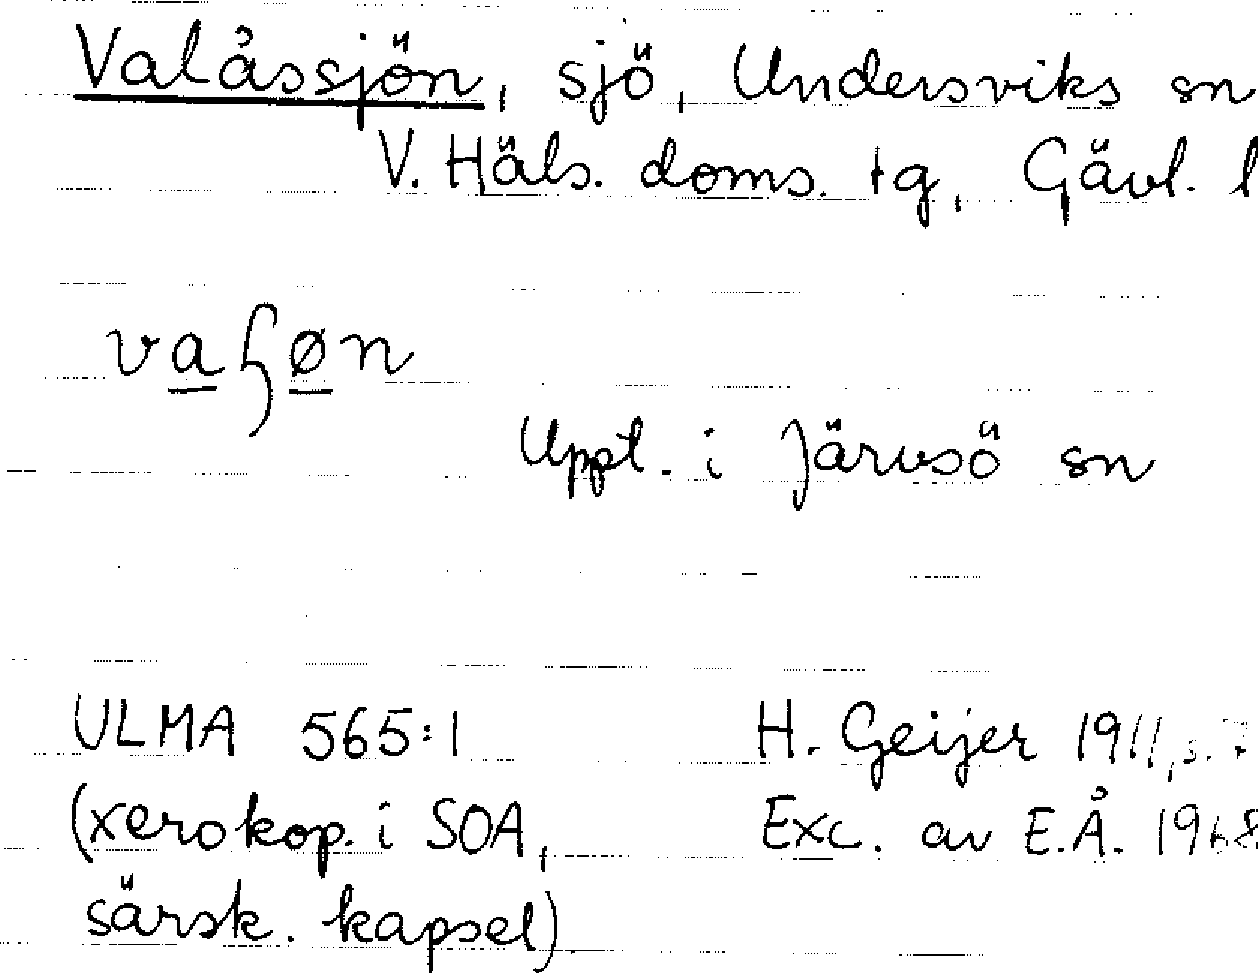 Valåssjön, sjö, Undersviks sn
V. Häls. doms. tg, Gävl. l
Uppt. i Järvsö sn
ULMA 565:1
H. Geijer 1911, s. 7
(xerokop. i SOA,
Exc. av E.Å. 1968
särsk. kapsel)